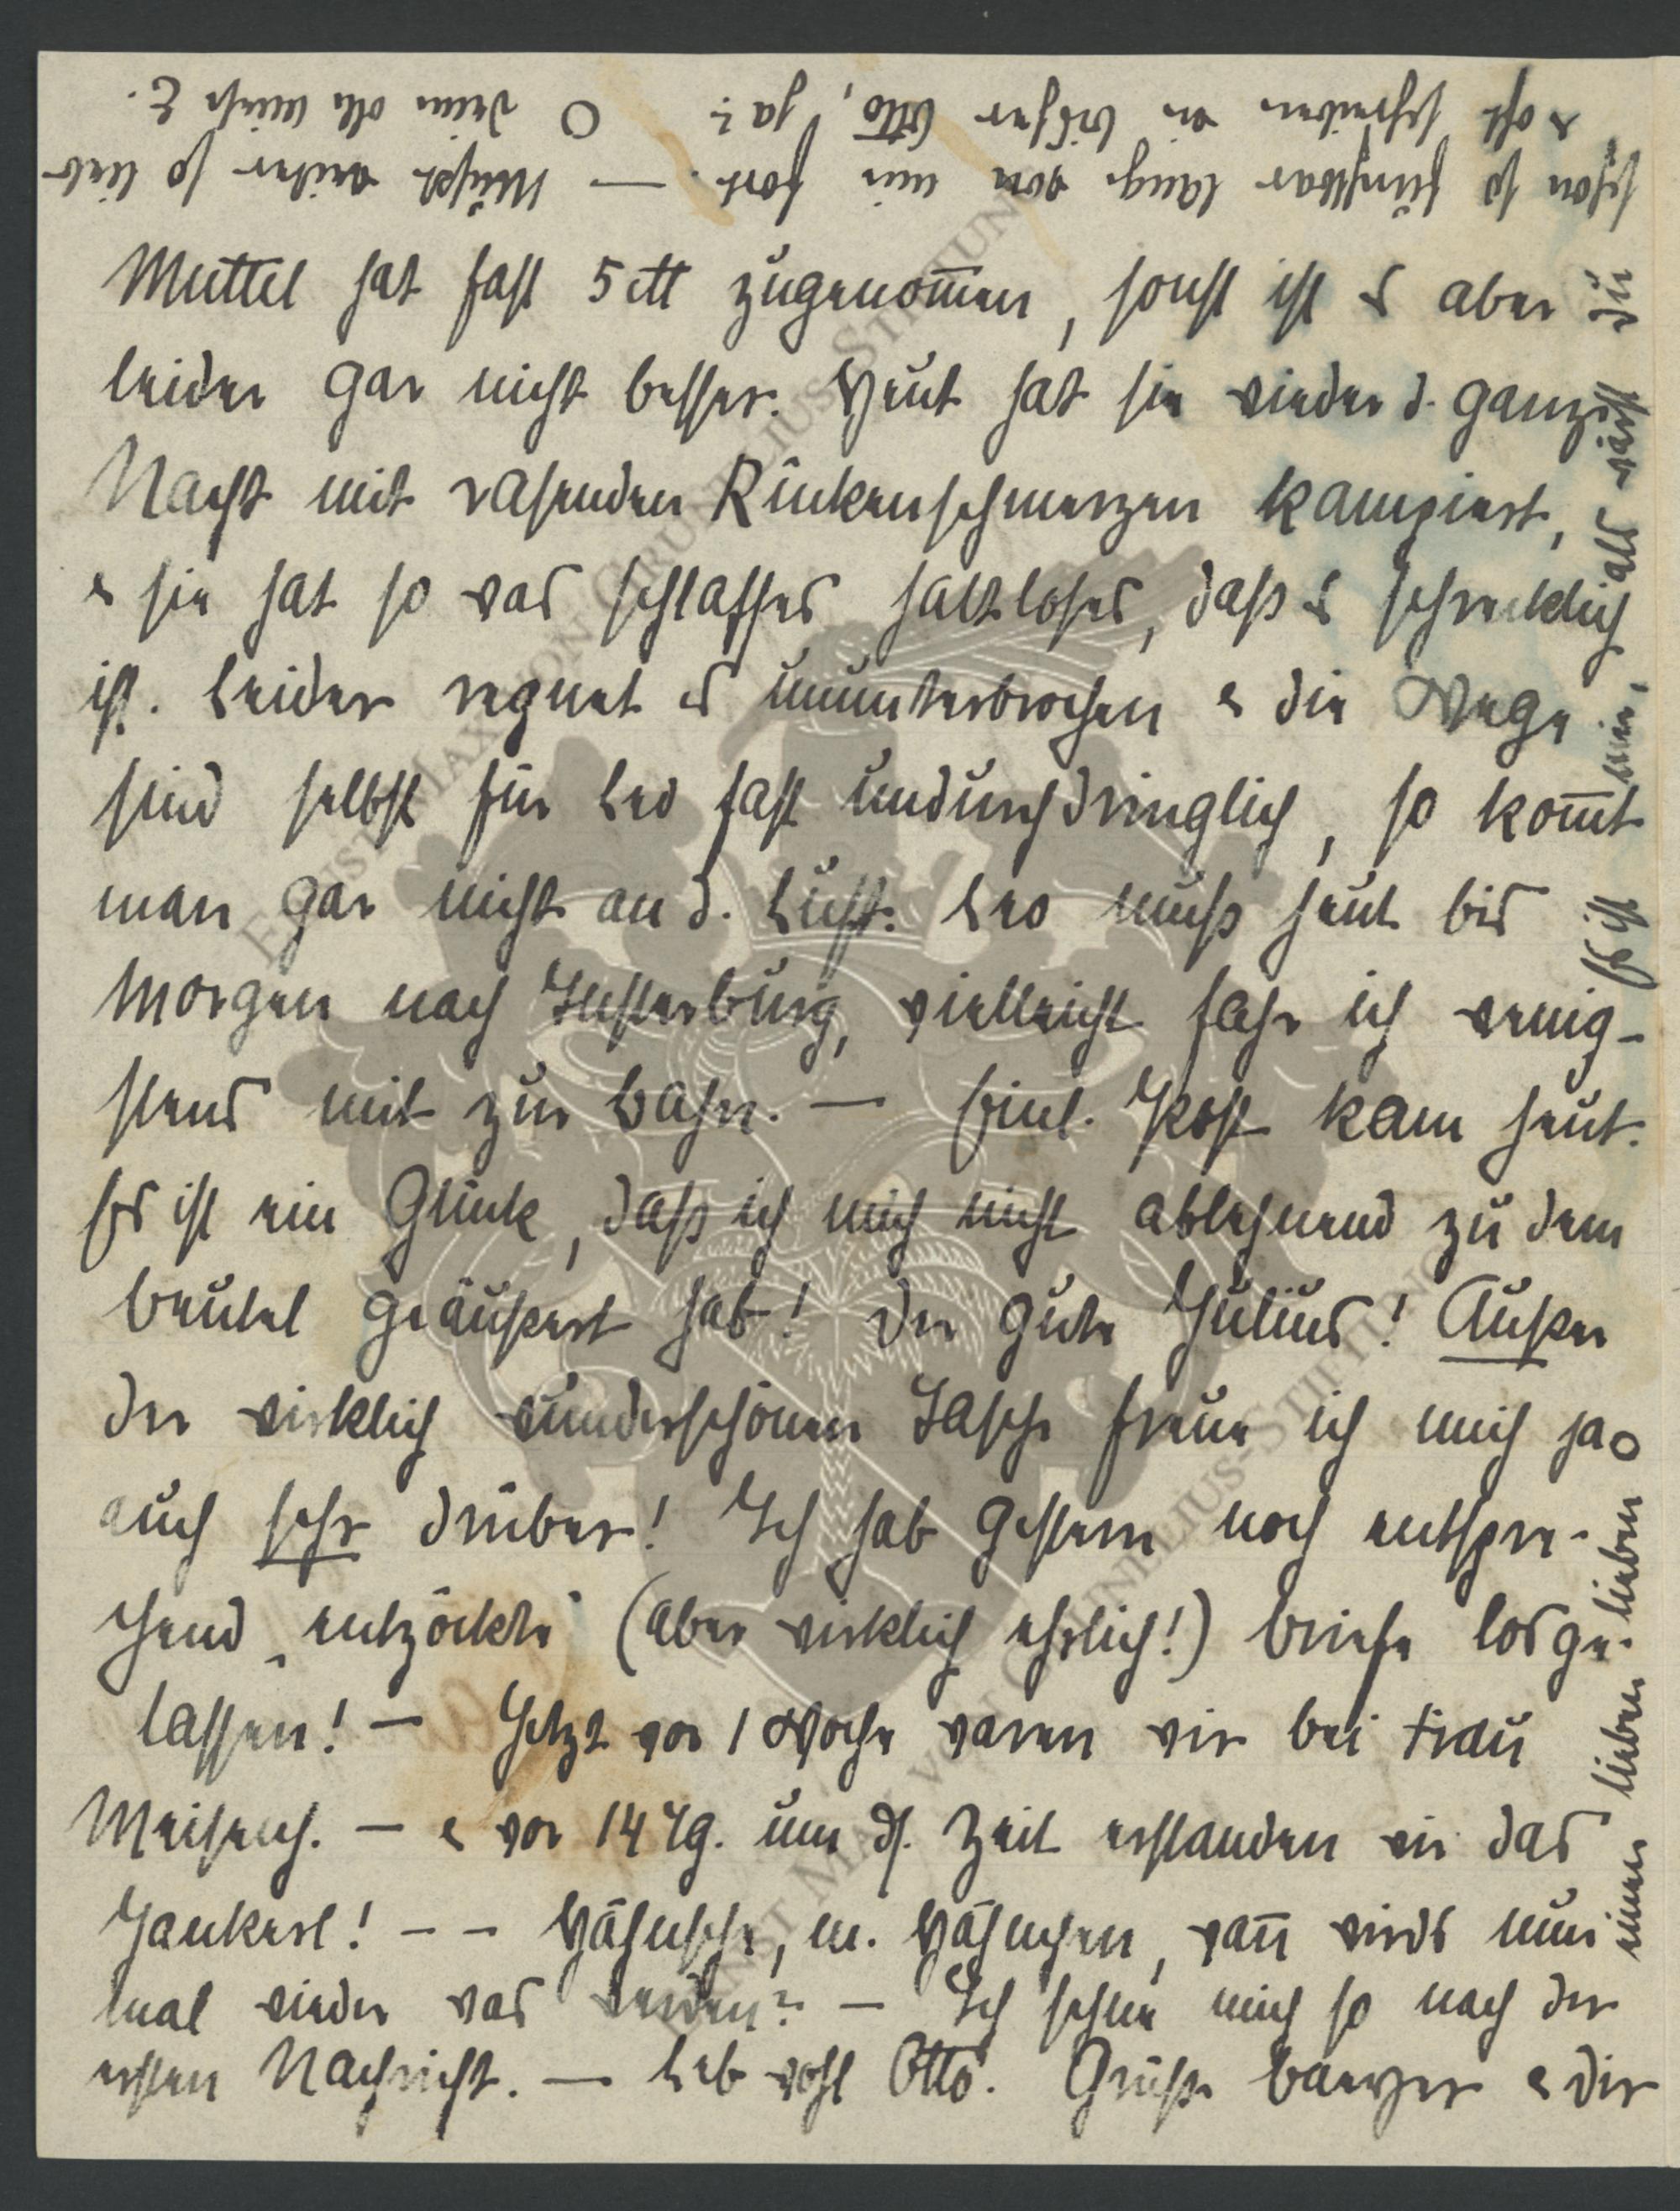 Muttel hat fast 5 ℔ zugenom̅en, sonst ist es aber
leider gar nicht besser. Heut hat sie wieder d. ganze
Nacht mit rasenden Rückenschmerzen kampiert,
& sie hat so was schlaffes haltloses, daß es schrecklich
ist. Leider regnet es ununterbrochen & die Wege
sind selbst für Leo fast undurchdringlich, so kom̅t
man gar nicht an d. Luft. Leo muß heut bis
morgen nach Insterburg, vielleicht fahr ich wenig-
stens mit zur Bahn. — Einl. Post kam heut.
Es ist ein Glück, daß ich mich nicht ablehnend zu dem
Beutel geäußert hab! Der gute Julius! Außer
der wirklich wunderschönen Tasche freue ich mich ja
auch sehr drüber! Ich hab gestern noch entspre-
chend „entzöckte" (aber wirklich ehrlich!) Briefe losge-
lassen! — Jetzt vor 1 Woche waren wir bei Frau
— & vor 14 Tg. um ds. Zeit erstanden wir das
Jankerl! – – Hähnsche, m. Hähnchen, wan̅ wirds nun
mal wieder was werden? — Ich sehne mich so nach der
ersten Nachricht. — Leb wohl Otto. Grüße & dir
einen lieben lieben O
Es ist mir, als wärst du
schon so furchtbar lange von mir fort. — Mußt wieder so lieb
& oft schreiben wie bisher Otto, ja? O Deine olle